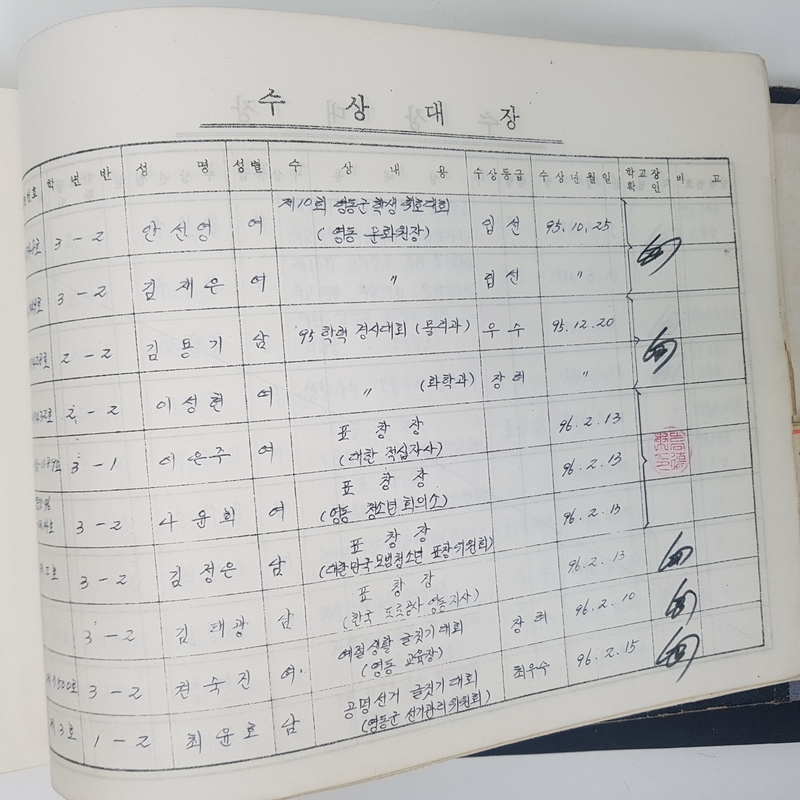 수 상 대 장
번호 학 년 반 성 명 성별 수 상 내 용 수상등급 수 상 년 월 일 학교장 확인 비 고
3 - 2 안 선 영 여 제10회 영동군 학생 휘호대회 (영동 문화원장) 입 선 95. 10. 25
3 - 2 김 재 은 여 〃 입 선 〃
2 - 2 김 용 기 남 '95 학력 경시대회 (물리과) 우 수 95. 12. 20
2 - 2 이 성 현 여 〃 (화학과) 장 려 〃
3 - 1 이 은 주 여 표 창 장 (대한 적십자사) 96. 2. 13
3 - 2 나 윤 희 여 표 창 장 (영동 청소년 회의소) 96. 2. 13
제2호 3 - 2 김 정 은 남 표 창 장 (대한민국 모범청소년 표창위원회) 96. 2. 13
3 - 2 김 태 광 남 표 창 장 (한국 도로공사 영동지사) 96. 2. 13
3 - 2 전 숙 진 여 예절 생활 글짓기 대회 (영동 교육장) 장 려 96. 2. 10
제3호 1 - 2 최 윤 호 남 공명선거 글짓기 대회 (영동군 선거관리위원회) 최우수 96. 2. 15